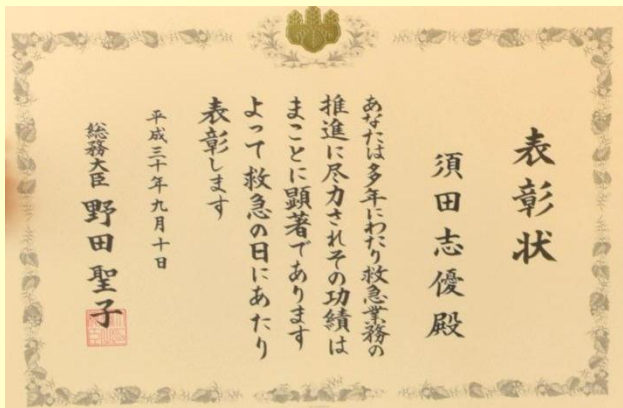 表彰状
須田志優殿
あなたは多年にわたり救急業務の
推進に尽力されその功績は
まことに顕著であります
よって救急の日にあたり
表彰します
平成三十年九月十日
総務大臣 野田聖子